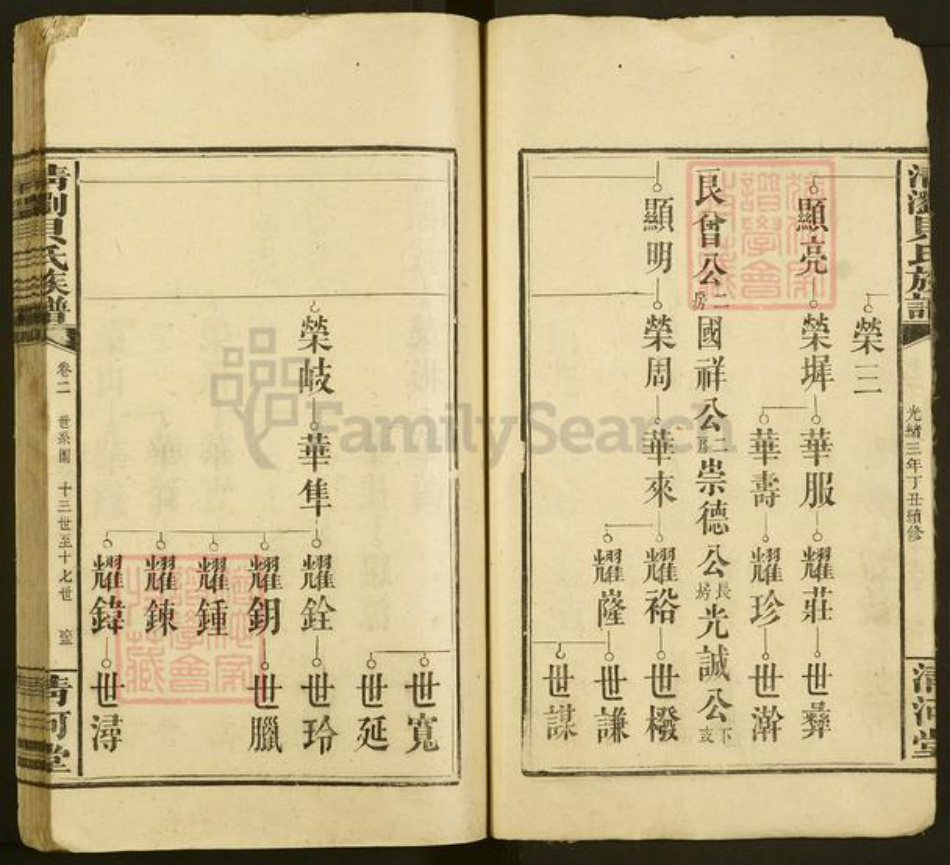 清瀏貝氏族譜
光緒三年丁丑續修
清河堂
榮三
顯亮
榮墀
華服
耀莊
世彝
華壽
耀珍
世瀚
艮會公二房國祥公二房崇德公長房光誠公下支
顯明
榮周
華來
耀裕
世橃
耀嶐
世謙
世謀
世寬
世延
榮岐
華隼
耀銓
世玲
耀鈅
世臘
耀鍾
耀鍊
耀鍏
世潯
清瀏貝氏族譜
卷二
世系圖
十三世至十七世
清河堂
FamilySearch